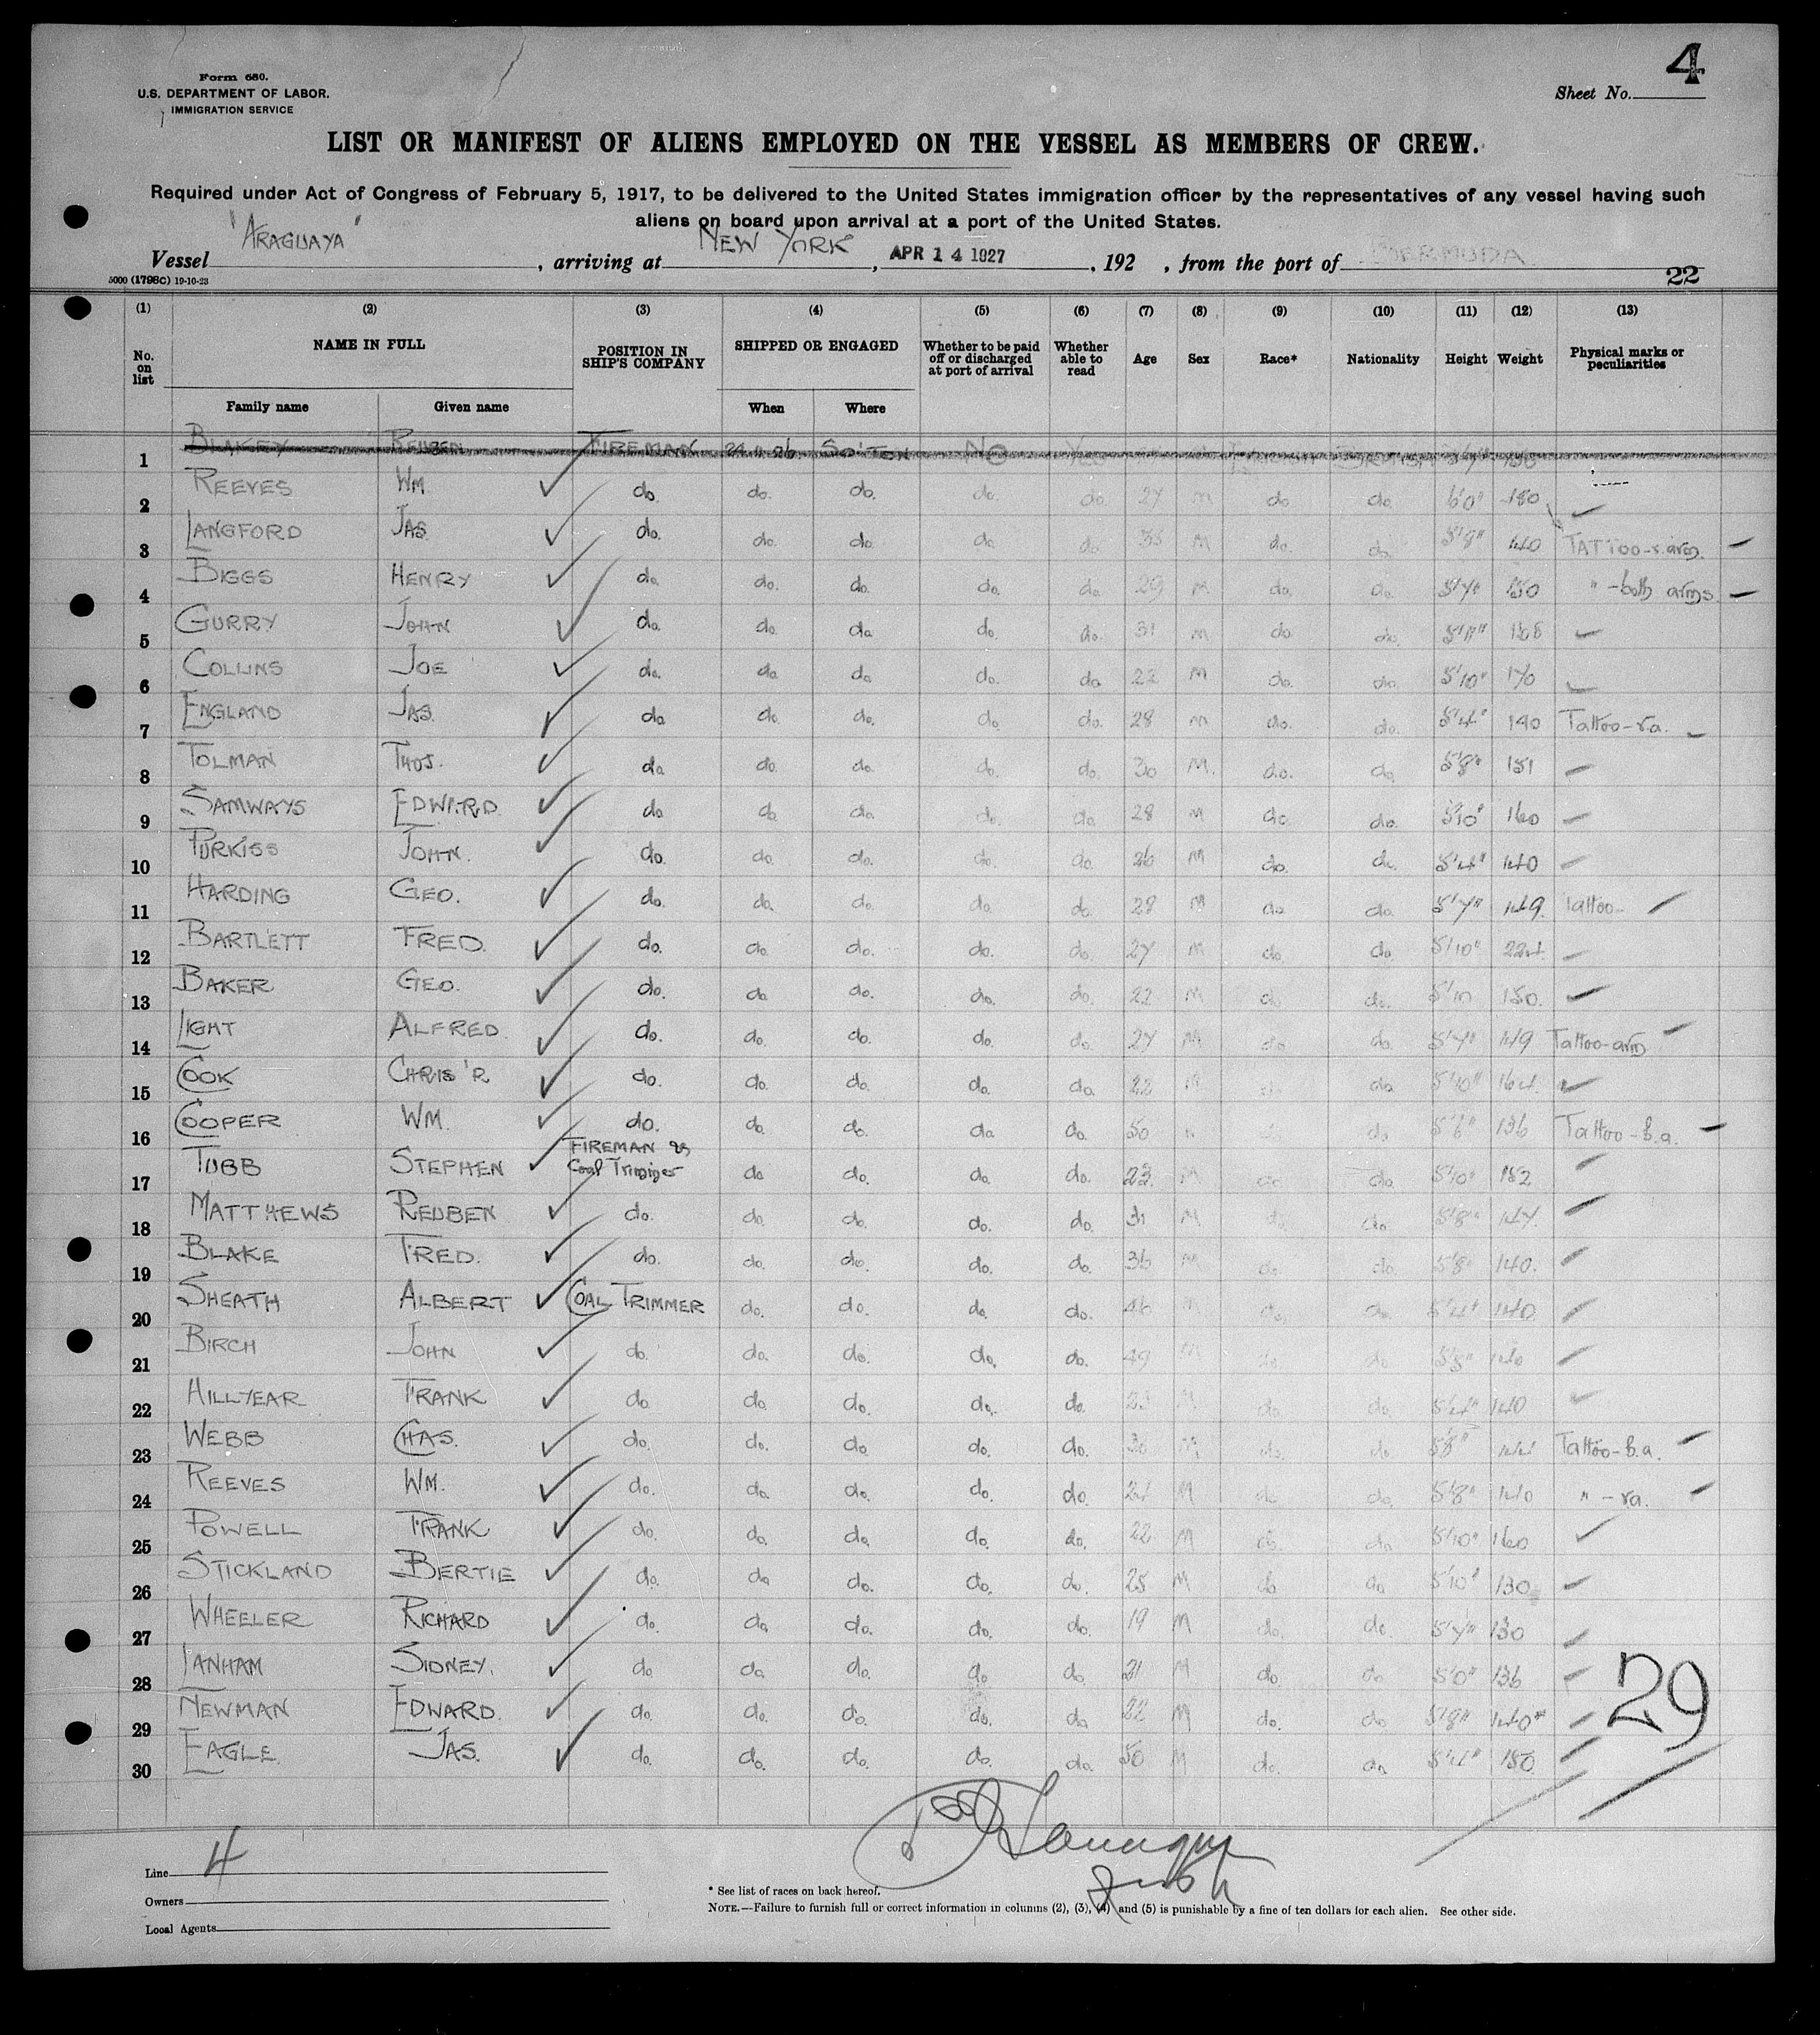 4
Form 680.
U.S. DEPARTMENT OF LABOR.
IMMIGRATION SERVICE
Sheet No.
LIST OR MANIFEST OF ALIENS EMPLOYED ON THE VESSEL AS MEMBERS OF CREW.
Required under Act of Congress of February 5, 1917, to be delivered to the United States immigration officer by the representatives of any vessel having such
aliens on board upon arrival at a port of the United States.
Vessel "ARAGUAYA", arriving at NEW YORK, APR 14 1927, 192 , from the port of BERMUDA
5000 (1798C) 19-10-23
22
(1) (2) (3) (4) (5) (6) (7) (8) (9) (10) (11) (12) (13)
No. on list NAME IN FULL POSITION IN SHIP'S COMPANY SHIPPED OR ENGAGED Whether to be paid off or discharged at port of arrival Whether able to read Age Sex Race* Nationality Height Weight Physical marks or peculiarities
Family name Given name When Where
1 BLAKEY REUBEN FIREMAN 24 11 26 SO'TON NO YES BRITISH 5'7"
2 REEVES WM. do. do. do. do. do. 27 M do. do. 6'0" 180
3 LANGFORD JAS. do. do. do. do. do. 35 M do. do. 5'8" 140 TATTOO-r.arm.
4 BIGGS HENRY do. do. do. do. do. 29 M do. do. 5'7" 150 " -both arms
5 GURRY JOHN do. do. do. do. do. 31 M do. do. 5'11" 168
6 COLLINS JOE do. do. do. do. do. 22 M do. do. 5'10" 170
7 ENGLAND JAS. do. do. do. do. do. 28 M do. do. 5'4" 140 Tattoo-r.a.
8 TOLMAN THOS. do. do. do. do. do. 30 M. do. do. 5'8" 151
9 SAMWAYS EDWARD. do. do. do. do. do. 28 M do. do. 5'10" 160
10 PURKISS JOHN. do. do. do. do. do. 26 M do. do. 5'4" 140
11 HARDING GEO. do. do. do. do. do. 28 M do. do. 5'7" 149 Tattoo-
12 BARTLETT FRED. do. do. do. do. do. 27 M do. do. 5'10" 224
13 BAKER GEO. do. do. do. do. do. 22 M do. do. 5'10 150.
14 LIGHT ALFRED. do. do. do. do. do. 27 M do. do. 5'7" 149 Tattoo-arm
15 COOK CHRIS'R do. do. do. do. do. 22 M do. 5'10" 164
16 COOPER WM. do. do. do. do. do. 50 do. 5'6" 136 Tattoo-b.a.
17 TUBB STEPHEN FIREMAN as Coal Trimmer do. do. do. do. 23 M do. do. 5'10" 152
18 MATTHEWS REUBEN do. do. do. do. do. 31 M do. do. 5'8" 147
19 BLAKE FRED. do. do. do. do. do. 36 M do. do. 5'8" 140.
20 SHEATH ALBERT COAL TRIMMER do. do. do. do. 46 M do. do. 5'4" 140
21 BIRCH JOHN do. do. do. do. do. 49 M do. do. 5'8" 140
22 HILLYEAR FRANK do. do. do. do. do. 23 M do. do. 5'4" 140
23 WEBB CHAS. do. do. do. do. do. 30 M do. do. 5'8" 144 Tattoo-b.a.
24 REEVES WM. do. do. do. do. do. 24 M do. do. 5'8" 140 " -ra.
25 POWELL FRANK do. do. do. do. do. 22 M do. do. 5'10" 160
26 STICKLAND BERTIE do. do. do. do. do. 25 M do. do. 5'10" 130
27 WHEELER RICHARD do. do. do. do. do. 19 M do. do. 5'7" 130
28 LANHAM SIDNEY. do. do. do. do. do. 21 M do. do. 5'0" 136
29 NEWMAN EDWARD. do. do. do. do. do. 22 M do. do. 5'8" 140
30 EAGLE JAS. do. do. do. do. do. 50 M do. do. 5'4" 150
29
Line 4
Owners
Local Agents
* See list of races on back hereof.
NOTE.—Failure to furnish full or correct information in columns (2), (3), (4) and (5) is punishable by a fine of ten dollars for each alien. See other side.